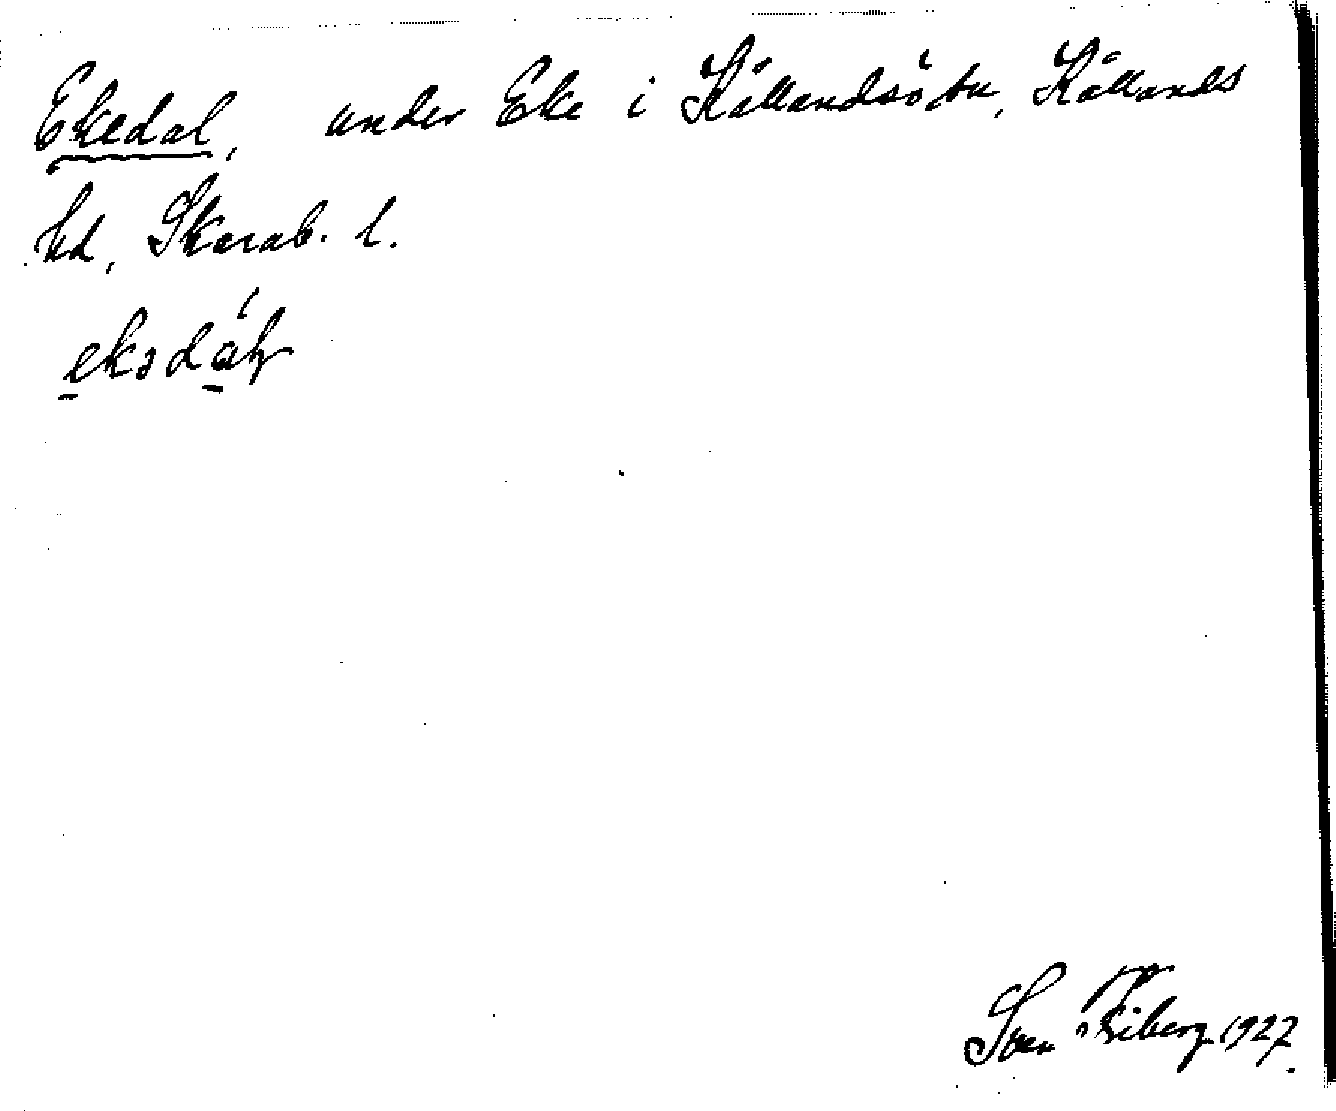 Ekedal, under Eke i Kållandsö sn, Kållands
hd, Skarab. l.
Sven Friberg 1927.